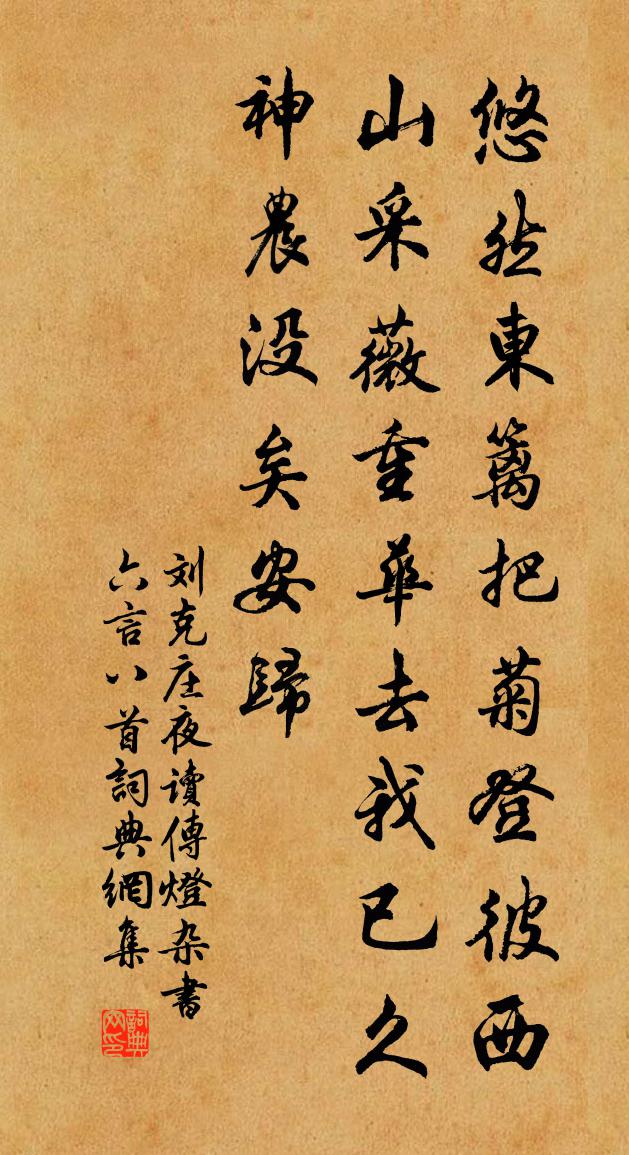 悠然東籬把菊登彼西
山采薇重華去我已久
神農没矣安歸
刘克庄夜读傳燈杂書
六言八首詞典網集
詞典網印